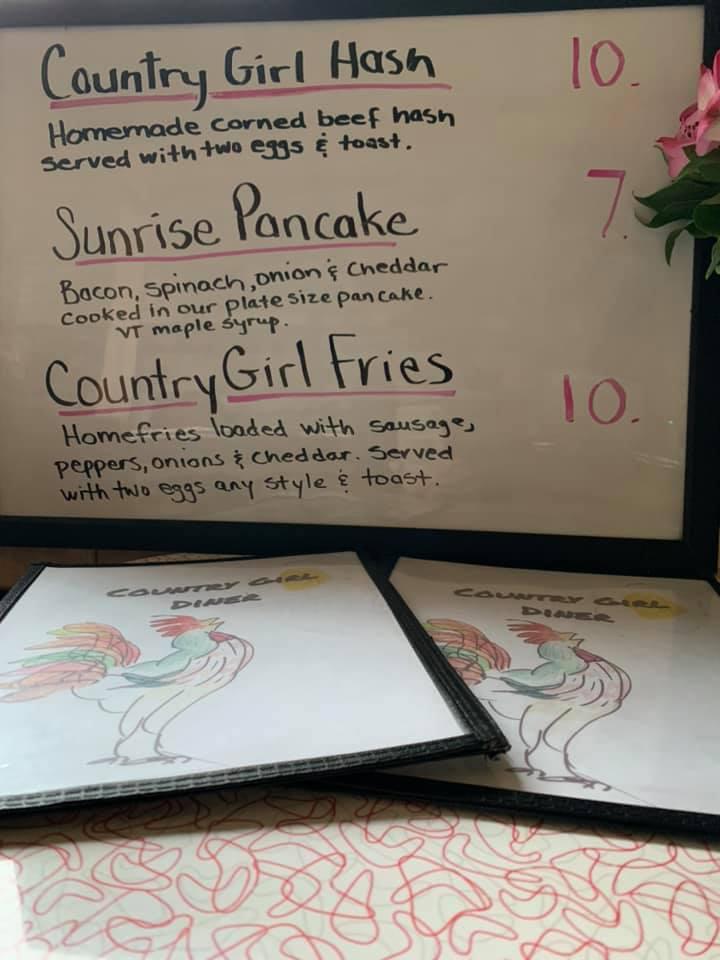 Country Girl Hash 10.
Homemade corned beef hash
served with two eggs & toast.
Sunrise Pancake 7.
Bacon, spinach, onion & cheddar
cooked in our plate size pancake.
VT maple syrup.
Country Girl Fries 10.
Homefries loaded with sausage,
peppers, onions & cheddar. Served
with two eggs any style & toast.
COUNTRY GIRL
DINER
COUNTRY GIRL
DINER